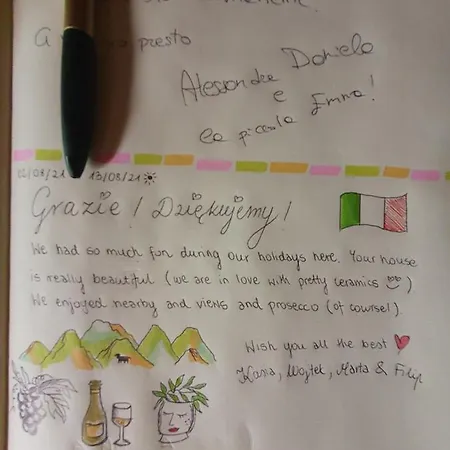 A presto
Alessandra Daniele
e
la piccola Emma!
13/08/21
Grazie! Dziękujemy!
We had so much fun during our holidays here. Your house
is really beautiful (we are in love with pretty ceramics)
We enjoyed nearby and views and prosecco (of course!).
Wish you all the best
Kasia, Wojtek, Marta & Filip